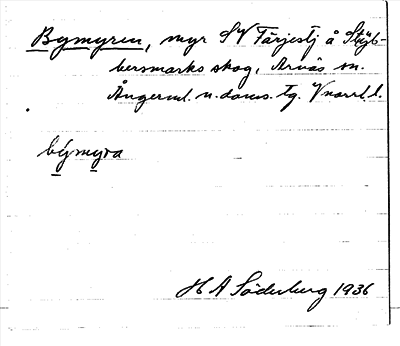 Bymyren, myr SV Tärjestj å Stybbersmarks skog, Arnäs sn.
Ångerml. n. doms. tg. Vnorrl. l.
býmyra
H A Söderberg 1936